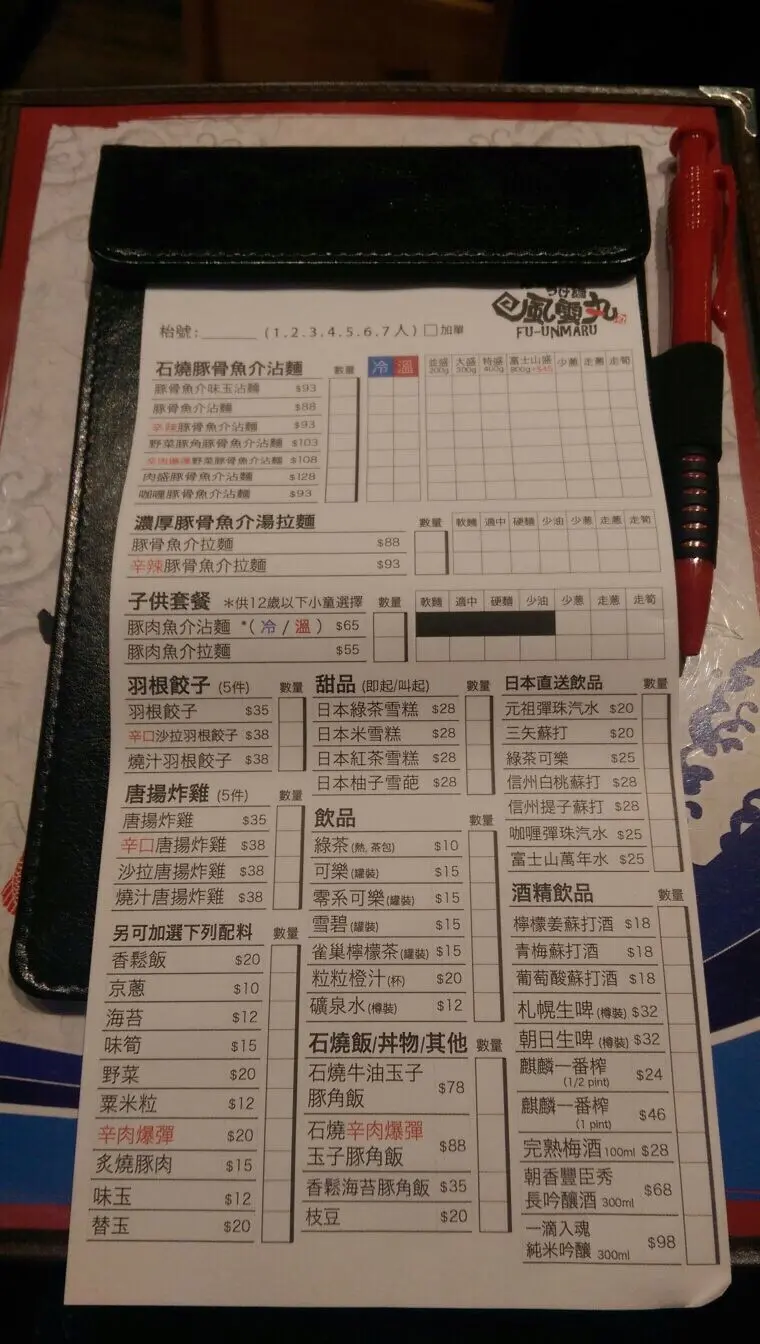 つけ麵
風雲丸
FU-UNMARU
枱號:______ (1.2.3.4.5.6.7人) □加單
石燒豚骨魚介沾麵 數量 冷 溫 並盛200g 大盛300g 特盛400g 富士山盛800g+$45 少蔥 走蔥 走筍
豚骨魚介味玉沾麵 $93
豚骨魚介沾麵 $88
辛辣豚骨魚介沾麵 $93
野菜豚角豚骨魚介沾麵 $103
辛肉爆彈野菜豚骨魚介沾麵 $108
肉盛豚骨魚介沾麵 $128
咖喱豚骨魚介沾麵 $93
濃厚豚骨魚介湯拉麵 數量 軟麵 適中 硬麵 少油 少蔥 走蔥 走筍
豚骨魚介拉麵 $88
辛辣豚骨魚介拉麵 $93
子供套餐 *供12歲以下小童選擇 數量 軟麵 適中 硬麵 少油 少蔥 走蔥 走筍
豚肉魚介沾麵 *(冷/溫) $65
豚肉魚介拉麵 $55
羽根餃子 (5件) 數量
羽根餃子 $35
辛口沙拉羽根餃子 $38
燒汁羽根餃子 $38
唐揚炸雞 (5件) 數量
唐揚炸雞 $35
辛口唐揚炸雞 $38
沙拉唐揚炸雞 $38
燒汁唐揚炸雞 $38
另可加選下列配料 數量
香鬆飯 $20
京蔥 $10
海苔 $12
味筍 $15
野菜 $20
粟米粒 $12
辛肉爆彈 $20
炙燒豚肉 $15
味玉 $12
替玉 $20
甜品 (即起/叫起) 數量
日本綠茶雪糕 $28
日本米雪糕 $28
日本紅茶雪糕 $28
日本柚子雪葩 $28
飲品 數量
綠茶(熱, 茶包) $10
可樂(罐裝) $15
零系可樂(罐裝) $15
雪碧(罐裝) $15
雀巢檸檬茶(罐裝) $15
粒粒橙汁(杯) $20
礦泉水(樽裝) $12
石燒飯/丼物/其他 數量
石燒牛油玉子
豚角飯 $78
石燒辛肉爆彈
玉子豚角飯 $88
香鬆海苔豚角飯 $35
枝豆 $20
日本直送飲品 數量
元祖彈珠汽水 $20
三矢蘇打 $20
綠茶可樂 $25
信州白桃蘇打 $28
信州提子蘇打 $28
咖喱彈珠汽水 $25
富士山萬年水 $25
酒精飲品 數量
檸檬姜蘇打酒 $18
青梅蘇打酒 $18
葡萄酸蘇打酒 $18
札幌生啤(樽裝) $32
朝日生啤(樽裝) $32
麒麟一番榨
(1/2 pint) $24
麒麟一番榨
(1 pint) $46
完熟梅酒100ml $28
朝香豐臣秀
長吟釀酒 300ml $68
一滴入魂
純米吟釀 300ml $98